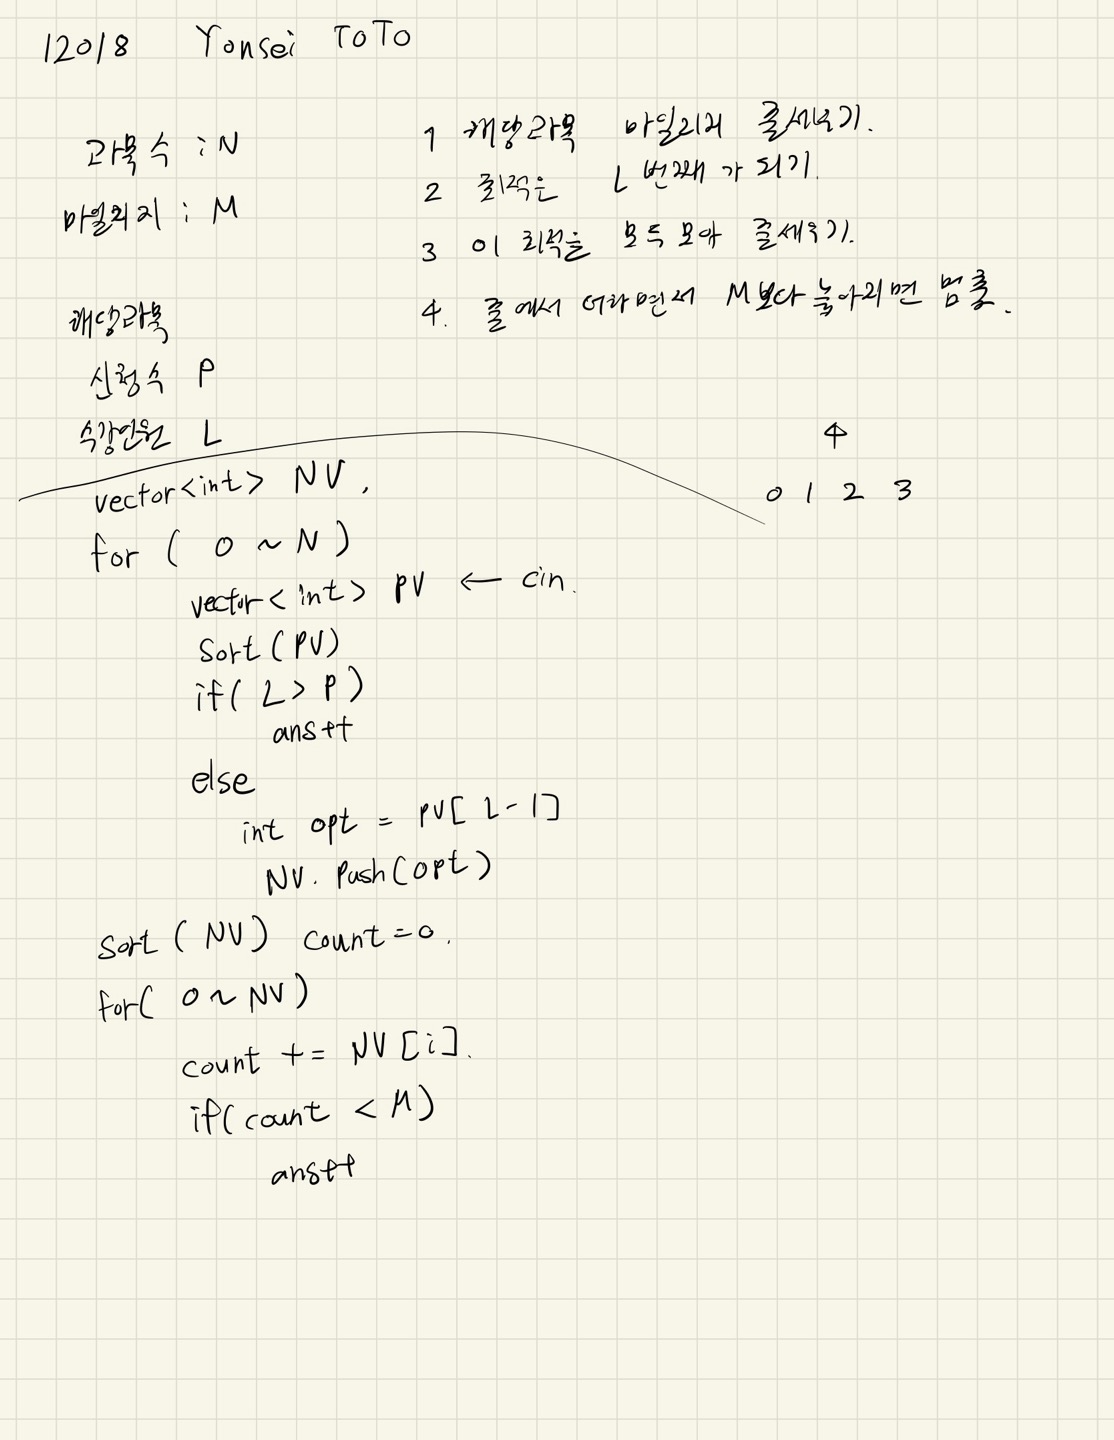 12018 Yonsei TOTO
과목수 : N
마일리지 : M
1 해당과목 마일리지 줄세우기.
2 최적은 L번째가 되기.
3 이 최적을 모두 모아 줄세우기.
4. 줄에서 더하면서 M보다 높아지면 멈춤.
해당과목
신청수 P
수강인원 L
0 1 2 3
vector<int> NV,
for ( 0 ~ N )
vector<int> PV ← cin.
Sort(PV)
if( L > P )
ans++
else
int opt = PV[ L-1]
NV. Push(opt)
Sort ( NV ) count=0.
for( 0 ~ NV )
count += NV [i].
if(count < M)
ans++